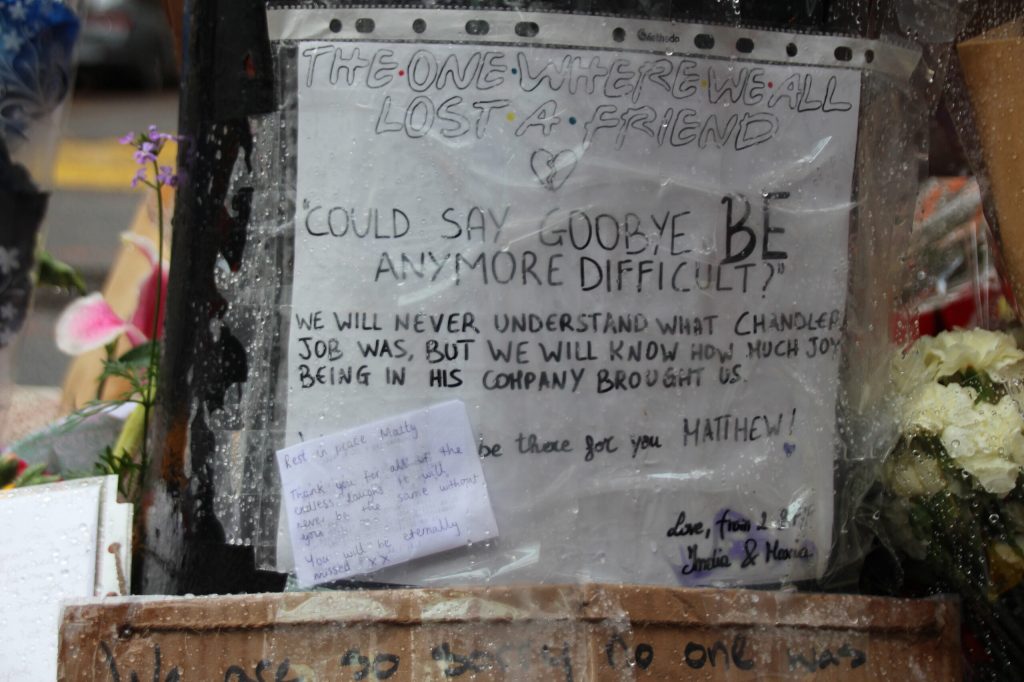 THE•ONE•WHERE•WE•ALL
LOST•A•FRIEND
"COULD SAY GOOBYE BE
ANYMORE DIFFICULT?"
WE WILL NEVER UNDERSTAND WHAT CHANDLER
JOB WAS, BUT WE WILL KNOW HOW MUCH JOY
BEING IN HIS COMPANY BROUGHT US.
be there for you MATTHEW!
Love, from
India &
Rest in peace Matty
Thank you for all of the
endless laughs it will
never be the same without
you
You will be eternally
missed xx
We are so sorry no one was